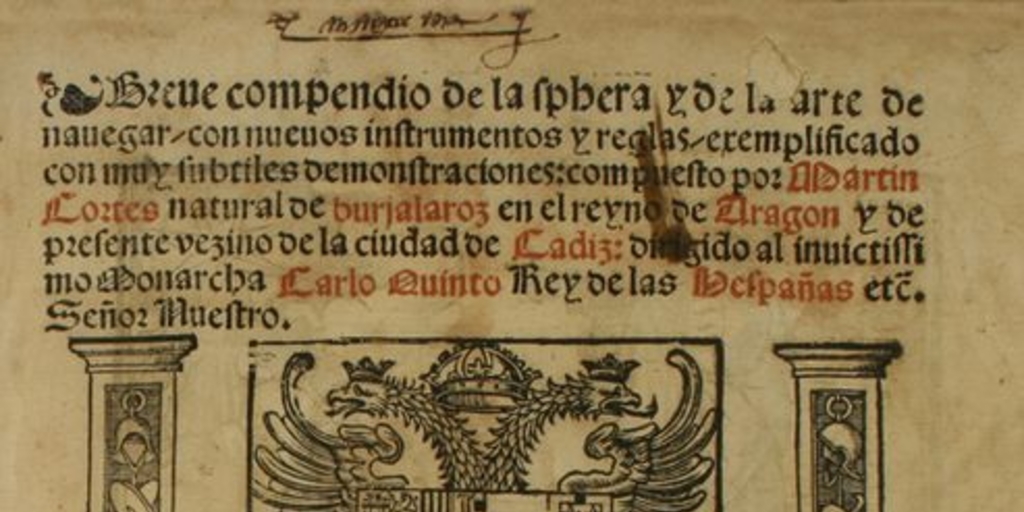 Breue compendio de la sphera y de la arte de
nauegar/con nueuos instrumentos y reglas/exemplificado
con muy subtiles demonstraciones:compuesto por Martin
Cortes natural de burjalaroz en el reyno de Aragon y de
presente vezino de la ciudad de Cadiz: dirigido al inuictissi
mo Monarcha Carlo Quinto Rey de las Hespañas etc̃.
Señor Nuestro.